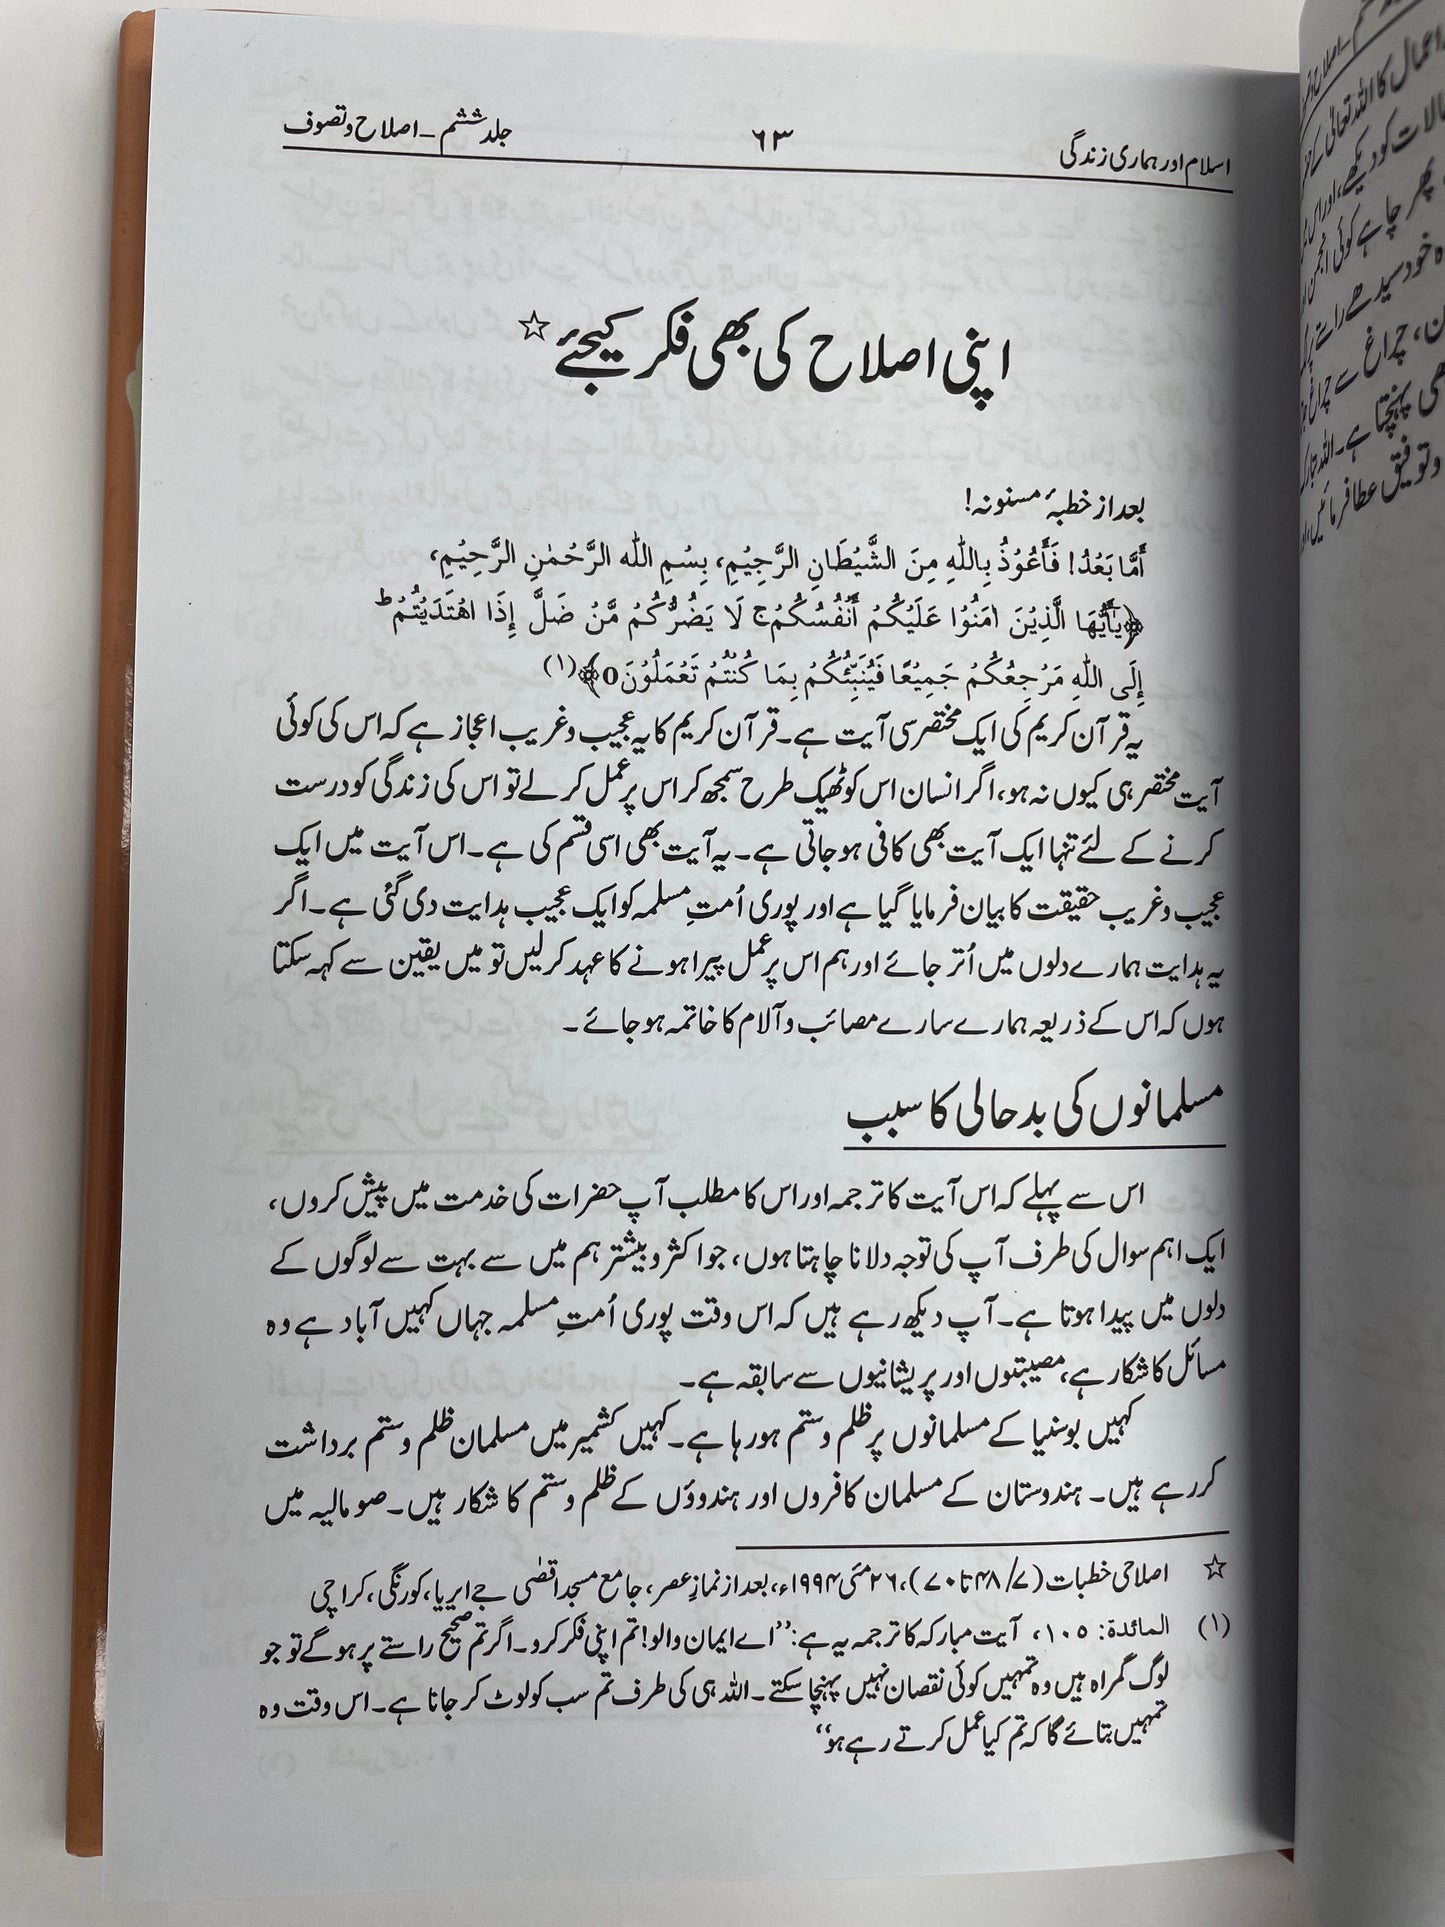 اسلام اور ہماری زندگی ۶۳ جلد ششم ۔ اصلاح و تصوف
اپنی اصلاح کی بھی فکر کیجئے ☆
بعد از خطبۂ مسنونہ!
أَمَّا بَعْدُ! فَأَعُوْذُ بِاللّٰهِ مِنَ الشَّيْطَانِ الرَّجِيْمِ، بِسْمِ اللّٰه الرَّحْمٰنِ الرَّحِيْمِ،
﴿يٰٓأَيُّهَا الَّذِيْنَ اٰمَنُوْا عَلَيْكُمْ أَنْفُسَكُمْ ج لَا يَضُرُّكُمْ مَّنْ ضَلَّ إِذَا اهْتَدَيْتُمْ ط
إِلَى اللّٰهِ مَرْجِعُكُمْ جَمِيْعًا فَيُنَبِّئُكُمْ بِمَا كُنْتُمْ تَعْمَلُوْنَ0﴾(۱)
یہ قرآن کریم کی ایک مختصر سی آیت ہے۔ قرآن کریم کا یہ عجیب و غریب اعجاز ہے کہ اس کی کوئی
آیت مختصر ہی کیوں نہ ہو، اگر انسان اس کو ٹھیک طرح سمجھ کر اس پر عمل کر لے تو اس کی زندگی کو درست
کرنے کے لئے تنہا ایک آیت بھی کافی ہو جاتی ہے۔ یہ آیت بھی اسی قسم کی ہے۔ اس آیت میں ایک
عجیب و غریب حقیقت کا بیان فرمایا گیا ہے اور پوری اُمتِ مسلمہ کو ایک عجیب ہدایت دی گئی ہے۔ اگر
یہ ہدایت ہمارے دلوں میں اُتر جائے اور ہم اس پر عمل پیرا ہونے کا عہد کر لیں تو میں یقین سے کہہ سکتا
ہوں کہ اس کے ذریعہ ہمارے سارے مصائب و آلام کا خاتمہ ہو جائے۔
مسلمانوں کی بدحالی کا سبب
اس سے پہلے کہ اس آیت کا ترجمہ اور اس کا مطلب آپ حضرات کی خدمت میں پیش کروں،
ایک اہم سوال کی طرف آپ کی توجہ دلانا چاہتا ہوں، جو اکثر و بیشتر ہم میں سے بہت سے لوگوں کے
دلوں میں پیدا ہوتا ہے۔ آپ دیکھ رہے ہیں کہ اس وقت پوری اُمتِ مسلمہ جہاں کہیں آباد ہے وہ
مسائل کا شکار ہے، مصیبتوں اور پریشانیوں سے سابقہ ہے۔
کہیں بوسنیا کے مسلمانوں پر ظلم و ستم ہو رہا ہے۔ کہیں کشمیر میں مسلمان ظلم و ستم برداشت
کر رہے ہیں۔ ہندوستان کے مسلمان کافروں اور ہندوؤں کے ظلم و ستم کا شکار ہیں۔ صومالیہ میں
☆ اصلاحی خطبات (۷/ ۴۸ تا ۷۰)، ۲۶ مئی ۱۹۹۴ء، بعد از نمازِ عصر، جامع مسجد اقصٰی جے ایریا، کورنگی، کراچی
(۱) المائدة: ۱۰۵، آیت مبارکہ کا ترجمہ یہ ہے: ”اے ایمان والو! تم اپنی فکر کرو۔ اگر تم صحیح راستے پر ہو گے تو جو
لوگ گمراہ ہیں وہ تمہیں کوئی نقصان نہیں پہنچا سکتے۔ اللہ ہی کی طرف تم سب کو لوٹ کر جانا ہے۔ اس وقت وہ
تمہیں بتائے گا کہ تم کیا عمل کرتے رہے ہو“
اعمال کا اللہ تعالیٰ کے
حالات کو دیکھے، اور اس
پھر چاہے کوئی انجمن
خود سیدھے راستے پر
چراغ سے چراغ
پہنچتا ہے۔ اللہ تبارک
و توفیق عطا فرمائیں،